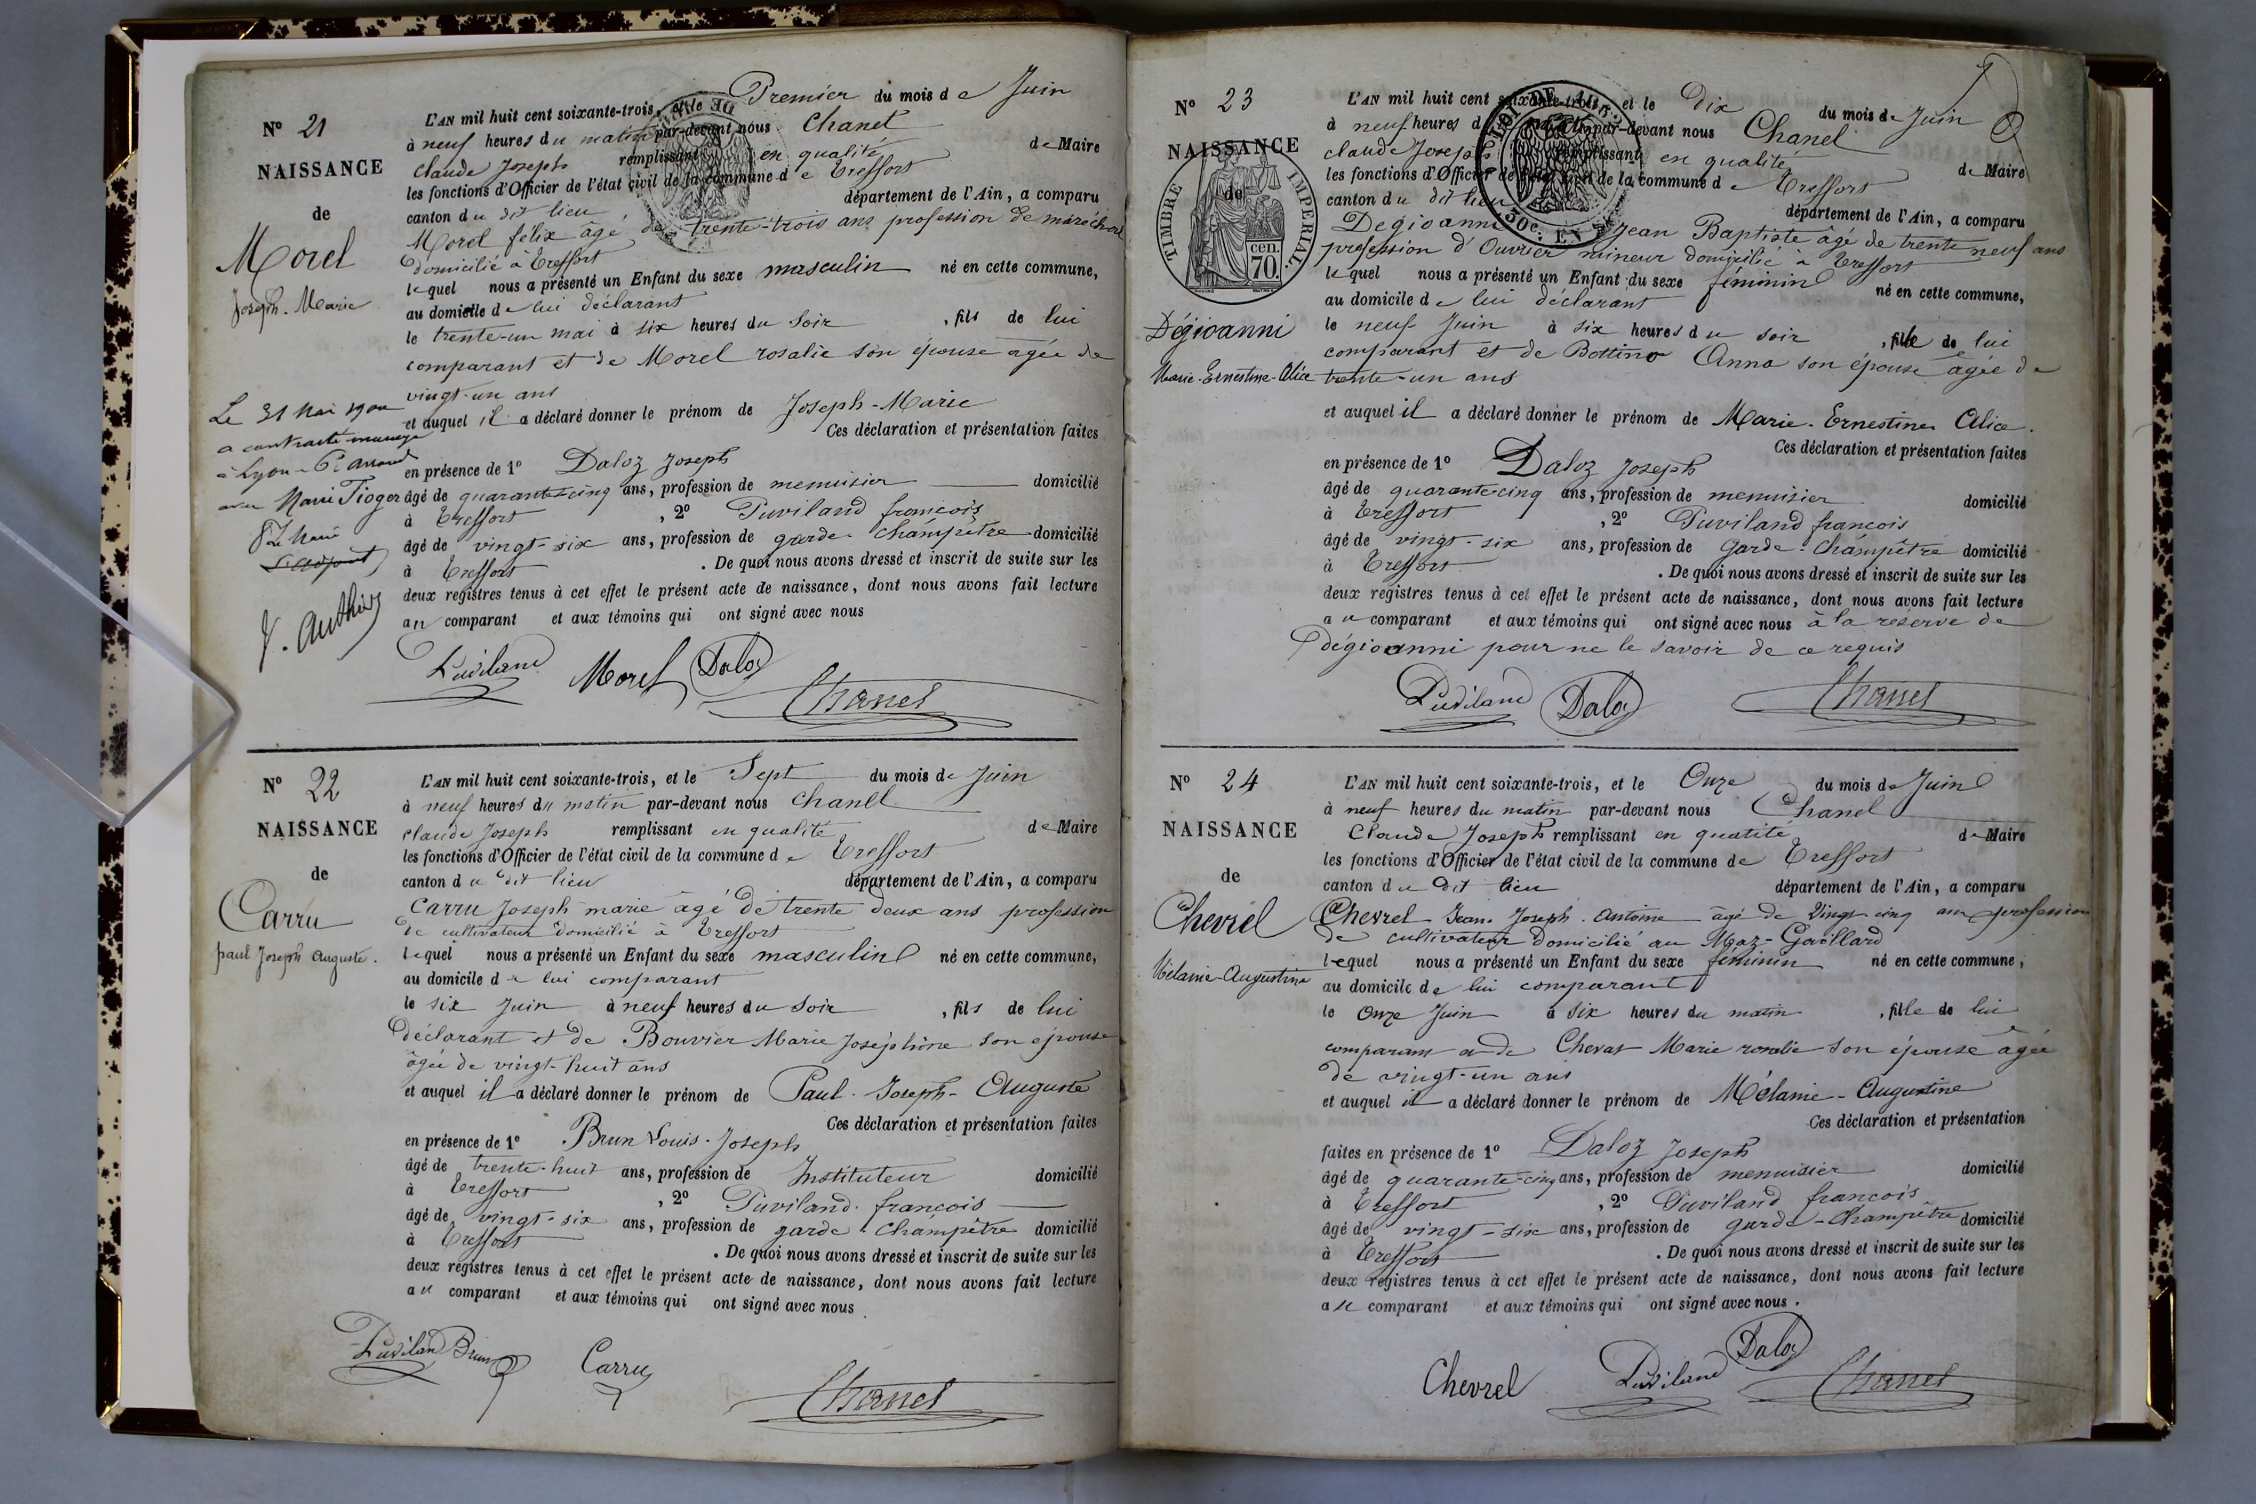 N° 21
NAISSANCE
de
Morel
Joseph-Marie
Le 31 Mai 1900
a contracté mariage
à Lyon
avec Marie Tioger
L'adjoint
L'AN mil huit cent soixante-trois, et le Premier du mois de Juin
à neuf heures du matin par-devant nous Chanel
claude Joseph remplissant en qualité de Maire
les fonctions d'Officier de l'état civil de la commune de Treffort
canton du dit lieu département de l'Ain, a comparu
Morel félix âgé de trente-trois ans profession de maréchal
domicilié à Treffort
lequel nous a présenté un Enfant du sexe masculin né en cette commune,
au domicile de lui déclarant
le trente-un mai à six heures du Soir, fils de lui
comparant et de Morel rosalie son épouse âgée de
vingt-un ans
et auquel il a déclaré donner le prénom de Joseph-Marie
Ces déclaration et présentation faites
en présence de 1° Daloz Joseph
âgé de quarante-cinq ans, profession de menuisier domicilié
à Treffort, 2° Puviland francois
âgé de vingt-six ans, profession de garde-champêtre domicilié
à Treffort. De quoi nous avons dressé et inscrit de suite sur les
deux registres tenus à cet effet le présent acte de naissance, dont nous avons fait lecture
au comparant et aux témoins qui ont signé avec nous
Puviland Morel Daloz
Chanel
N° 22
NAISSANCE
de
Carru
paul Joseph Auguste.
L'AN mil huit cent soixante-trois, et le Sept du mois de Juin
à neuf heures du matin par-devant nous Chanel
claude Joseph remplissant en qualité de Maire
les fonctions d'Officier de l'état civil de la commune de Treffort
canton du dit lieu département de l'Ain, a comparu
Carru Joseph marie âgé de trente deux ans profession
de cultivateur domicilié à Treffort
lequel nous a présenté un Enfant du sexe masculin né en cette commune,
au domicile de lui comparant
le six Juin à neuf heures du Soir, fils de lui
déclarant et de Bouvier Marie Joséphine son épouse
âgée de vingt-huit ans
et auquel il a déclaré donner le prénom de Paul-Joseph-Auguste
Ces déclaration et présentation faites
en présence de 1° Brun Louis-Joseph
âgé de trente-huit ans, profession de Instituteur domicilié
à Treffort, 2° Puviland francois
âgé de vingt-six ans, profession de garde-champêtre domicilié
à Treffort. De quoi nous avons dressé et inscrit de suite sur les
deux registres tenus à cet effet le présent acte de naissance, dont nous avons fait lecture
au comparant et aux témoins qui ont signé avec nous
Puviland Brun Carru
Chanel
N° 23
NAISSANCE
de
TIMBRE IMPERIAL.
70 cen.
Dégioanni
Marie-Ernestine-Alice
L'AN mil huit cent soixante-trois, et le dix du mois de Juin
à neuf heures du matin par-devant nous Chanel
claude Joseph remplissant en qualité de Maire
les fonctions d'Officier de l'état civil de la commune de Treffort
canton du dit lieu département de l'Ain, a comparu
Degioanni Jean Baptiste âgé de trente neuf ans
profession d'Ouvrier mineur domicilié à Treffort
lequel nous a présenté un Enfant du sexe féminin né en cette commune,
au domicile de lui déclarant
le neuf Juin à six heures du soir, fille de lui
comparant et de Bottino Anna son épouse âgée de
trente-un ans
et auquel il a déclaré donner le prénom de Marie-Ernestine Alice.
Ces déclaration et présentation faites
en présence de 1° Daloz Joseph
âgé de quarante-cinq ans, profession de menuisier domicilié
à Treffort, 2° Puviland francois
âgé de vingt-six ans, profession de garde-champêtre domicilié
à Treffort. De quoi nous avons dressé et inscrit de suite sur les
deux registres tenus à cet effet le présent acte de naissance, dont nous avons fait lecture
au comparant et aux témoins qui ont signé avec nous à la réserve de
dégioanni pour ne le savoir de ce requis
Puviland Daloz Chanel
N° 24
NAISSANCE
de
Chevrel
Mélanie-Augustine
L'AN mil huit cent soixante-trois, et le Onze du mois de Juin
à neuf heures du matin par-devant nous Chanel
Claude Joseph remplissant en qualité de Maire
les fonctions d'Officier de l'état civil de la commune de Treffort
canton du dit lieu département de l'Ain, a comparu
Chevrel Jean-Joseph-Antoine âgé de Vingt cinq ans profession
de cultivateur domicilié au Maz-Goüillard
lequel nous a présenté un Enfant du sexe féminin né en cette commune,
au domicile de lui comparant
le Onze Juin à six heures du matin, fille de lui
comparant et de Chevat Marie rosalie son épouse âgée
de vingt-un ans
et auquel il a déclaré donner le prénom de Mélanie-Augustine
Ces déclaration et présentation
faites en présence de 1° Daloz Joseph
âgé de quarante-cinq ans, profession de menuisier domicilié
à Treffort, 2° Puviland francois
âgé de vingt-six ans, profession de garde-champêtre domicilié
à Treffort. De quoi nous avons dressé et inscrit de suite sur les
deux registres tenus à cet effet le présent acte de naissance, dont nous avons fait lecture
au comparant et aux témoins qui ont signé avec nous.
Chevrel Puviland Daloz Chanel